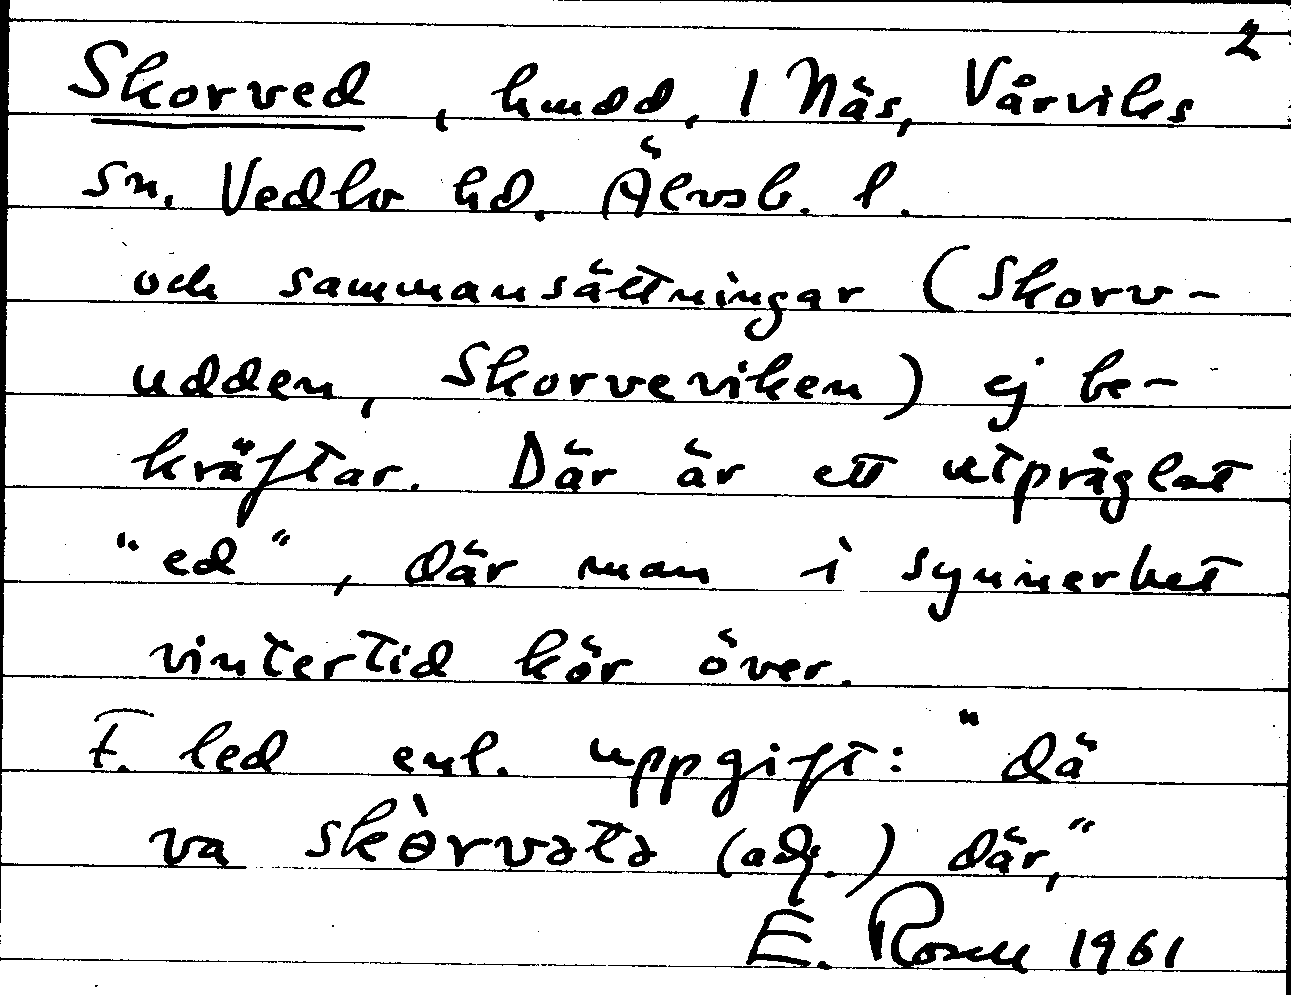 2
Skorved, hmdd, 1 Näs, Vårviks
sn. Vedbo hd. Älvsb. l.
och sammansättningar (Skorv-
udden, Skorveviken) ej be-
kräftar. Där är ett utpräglat
"ed", där man i synnerhet
vintertid kör över.
F. led enl. uppgift: "dä
va skòrvətə (adj.) där,"
E. Rosell 1961